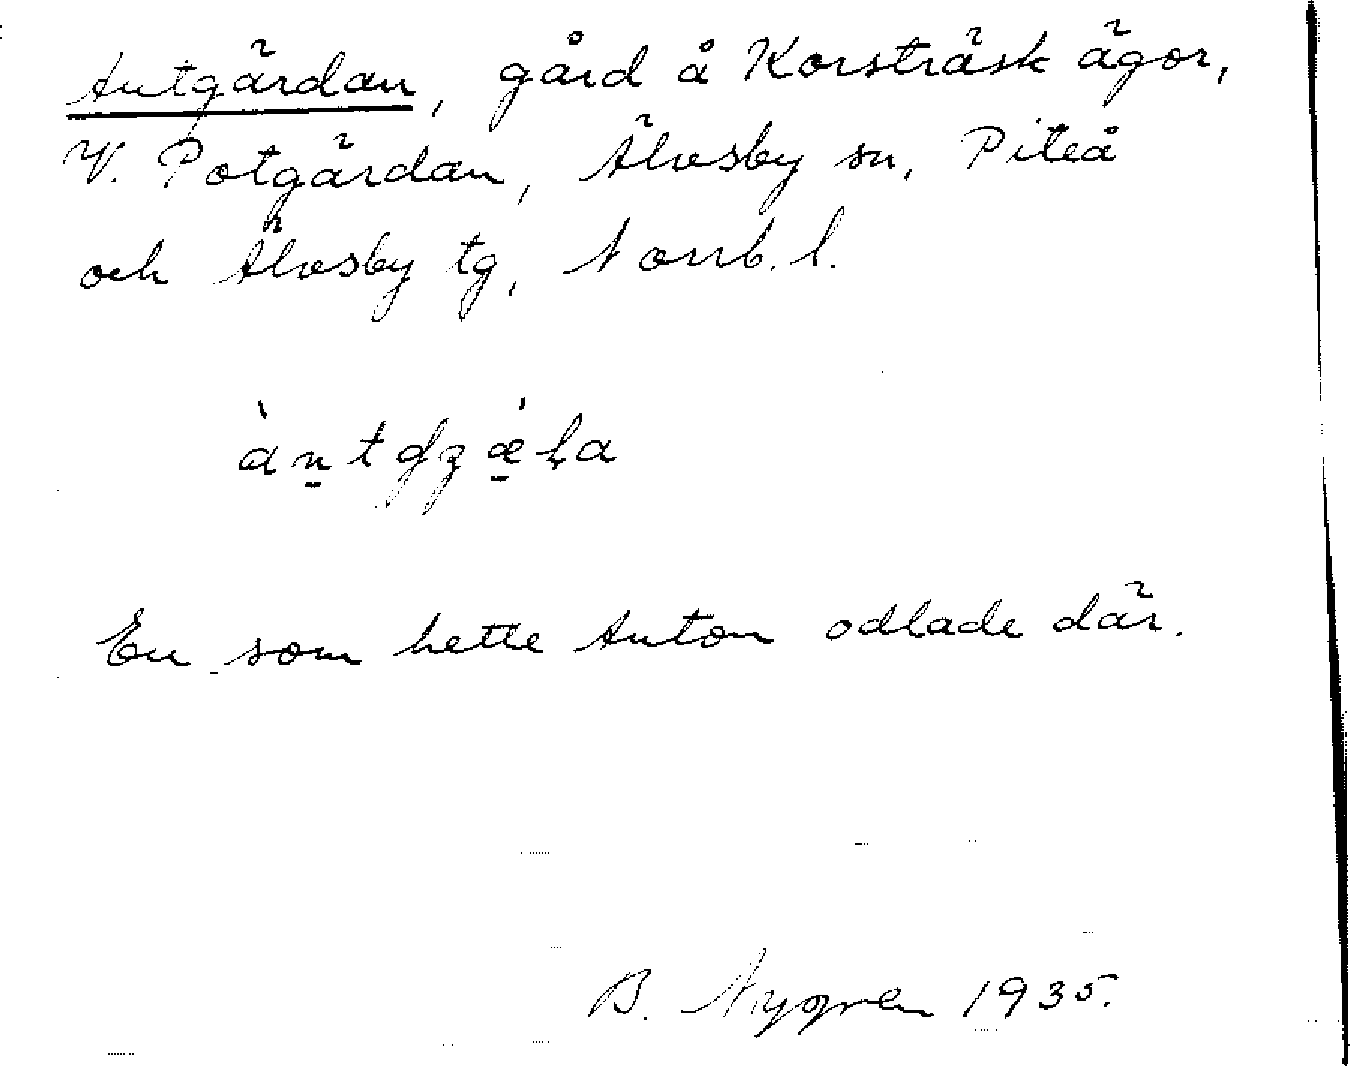 Antgärdan, gård å Korsträsk ägor,
V. Potgärdan, Älvsby sn, Piteå
och Älvsby tg, Norrb. l.
En som hette Anton odlade där.
B. Nygren 1935.